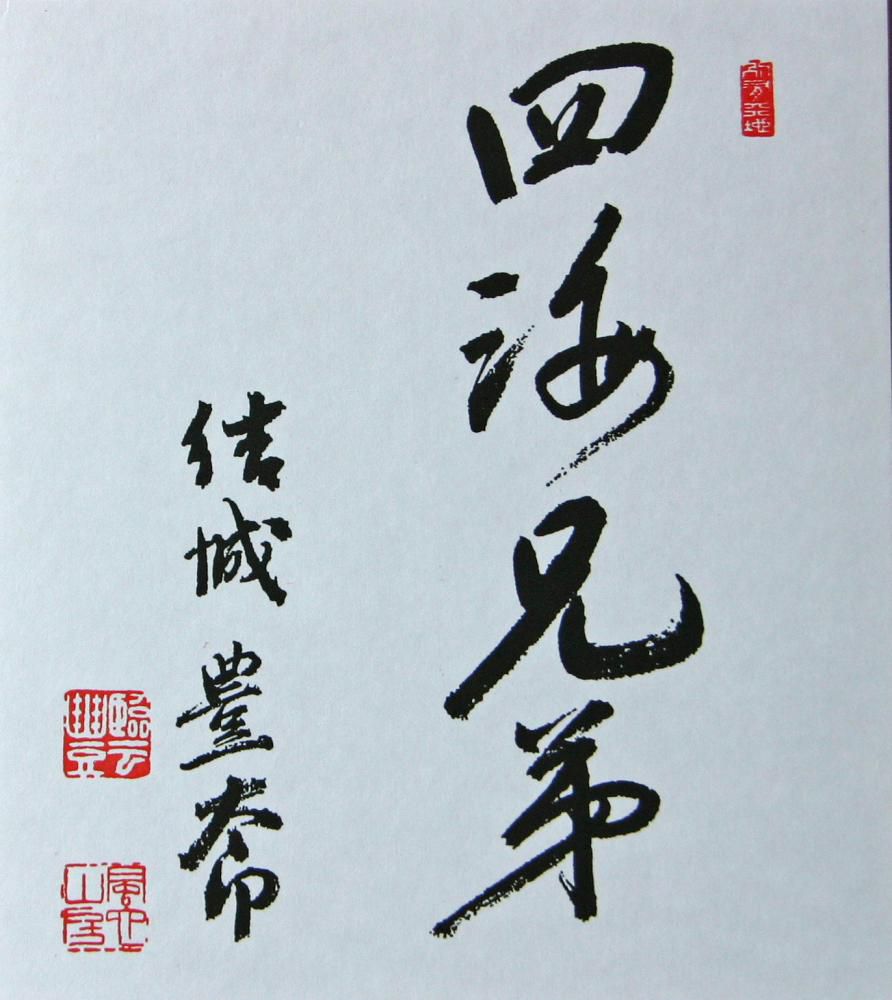 四海兄弟
結城豊太郎